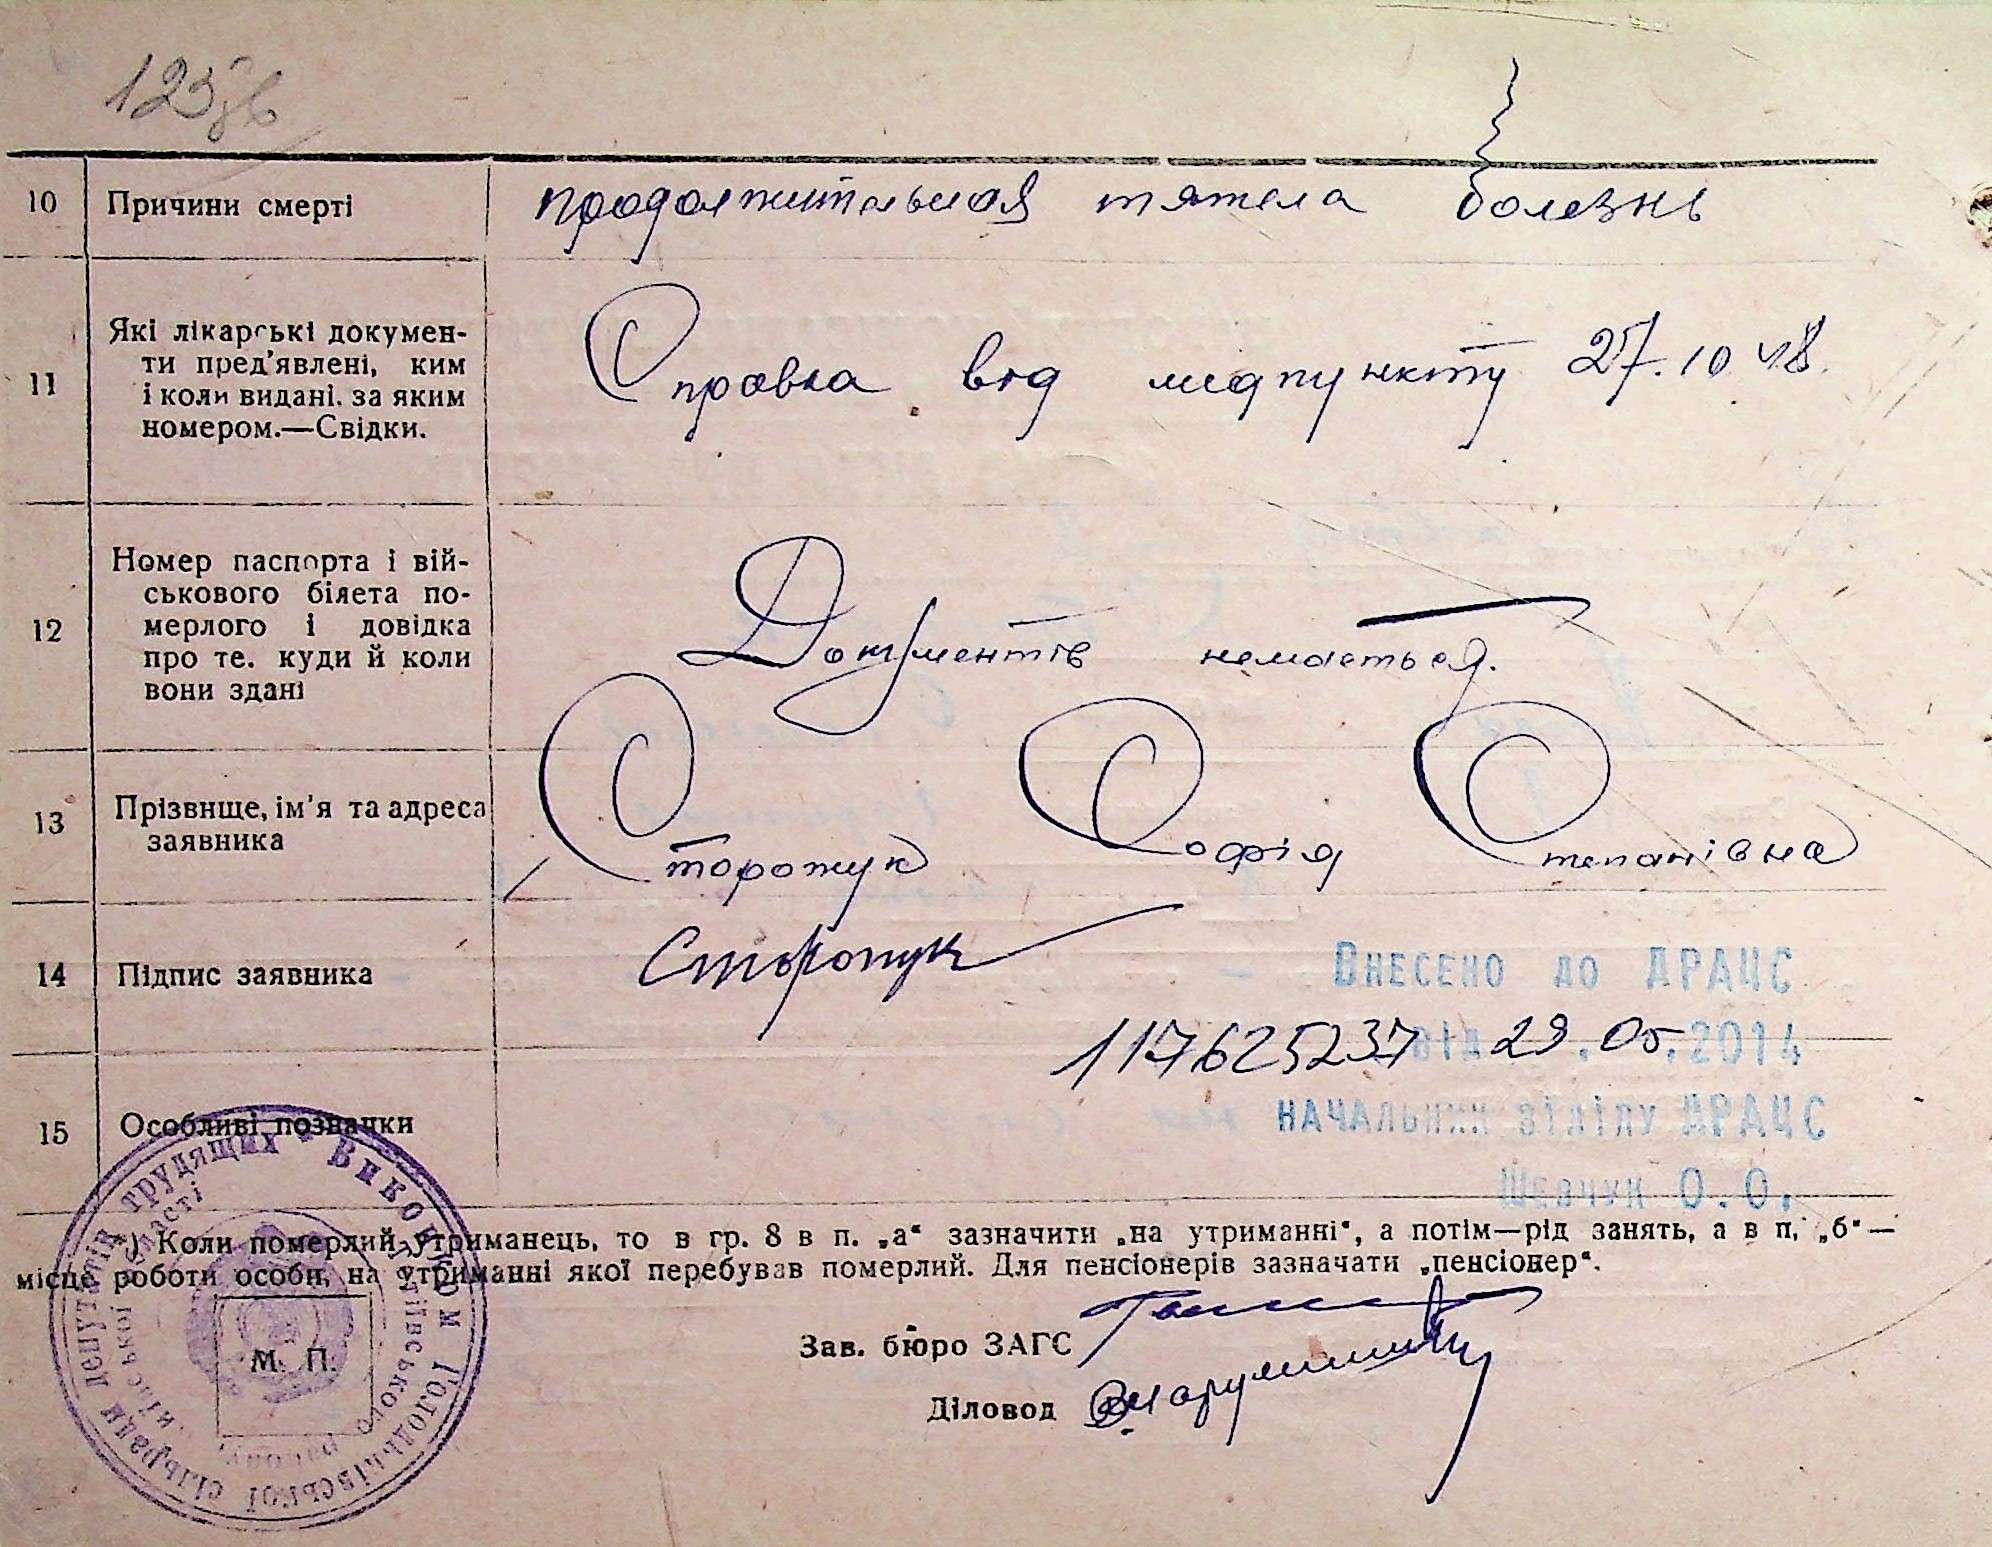 123
10 Причини смерті продолжительная тяжела болезнь
11 Які лікарські докумен-
ти пред'явлені, ким
і коли видані. за яким
номером.—Свідки.
Справка від мідпункту 27.10 48.
12 Номер паспорта і вій-
ськового білета по-
мерлого і довідка
про те. куди й коли
вони здані
Документів немаеться.
13 Прізвище, ім'я та адреса
заявника
Сторожук Софія Степанівна
14 Підпис заявника Сторожук
Внесено до ДРАЦС
117625237 від 29.05.2014
15 Особливі позначки
начальник відділу ДРАЦС
Шевчук О.О.
*) Коли померлий утриманець, то в гр. 8 в п. „а“ зазначити „на утриманні“, а потім—рід занять, а в п, „б“—
місце роботи особи, на утриманні якої перебував померлий. Для пенсіонерів зазначати „пенсіонер“.
Зав. бюро ЗАГС
Діловод
М. П.
Виконком Голодьківської сільради депутатів трудящих
області
району